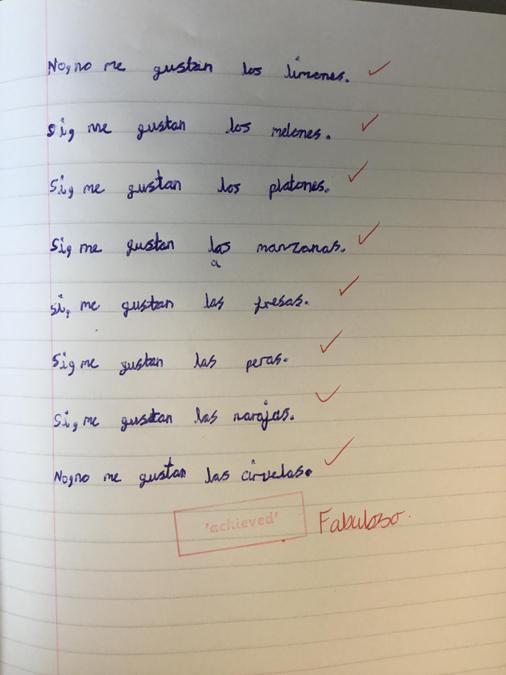 No, no me gustan los limenes.
Si, me gustan los melones.
Si, me gustan los platones.
Si, me gustan las manzanas.
a
Si, me gustan las fresas.
Si, me gustan las peras.
Si, me gustan las narajas.
No, no me gustan las ciruelas.
'achieved' Fabuloso.